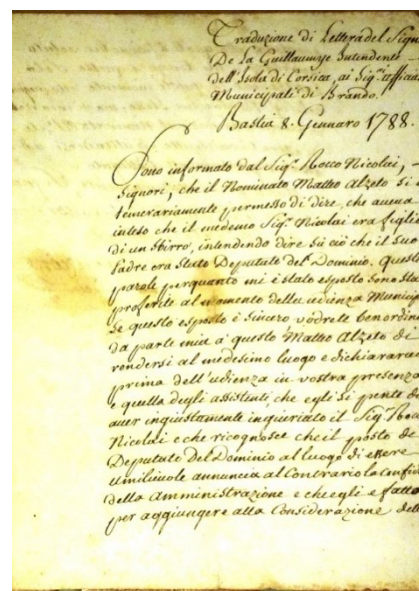 Traduzione di Lettera del Sign
De La Guillaumye Intendente
dell'Isola di Corsica, ai Sig.ri offician
Municipali di Brando.
Bastia 8. Gennaro 1788.
Sono informato dal Sig.r Rocco Nicolai, -
Signori, che il Nominato Matteo Alzeto si è
temerariamente permesso di dire, che aveva
inteso che il medemo Sig.r Nicolai era figlio
di un sbirro, intendendo dire su ciò che il suo
Padre era stato Deputato del Dominio. Queste
parole perquanto mi è stato esposto sono sta
proferite al momento della udienza Municip
se questo esposto è sincero vodrete ben ordina
da parte mia a questo Matteo Alzeto de
rendersi al medesimo luogo e dichiarara
prima dell'udienza in vostra presenza
e quella degli assistenti, che egli si pente de
aver ingiustamente ingiuriato il Sig.r Roc
Nicolai e che ricognosce che il posto de
Deputato del Dominio al luogo di essere
umiliuole annuncia al Contrario la Confid
della Amministrazione e che egli e fatto
per aggiungere alla Considerazione dell